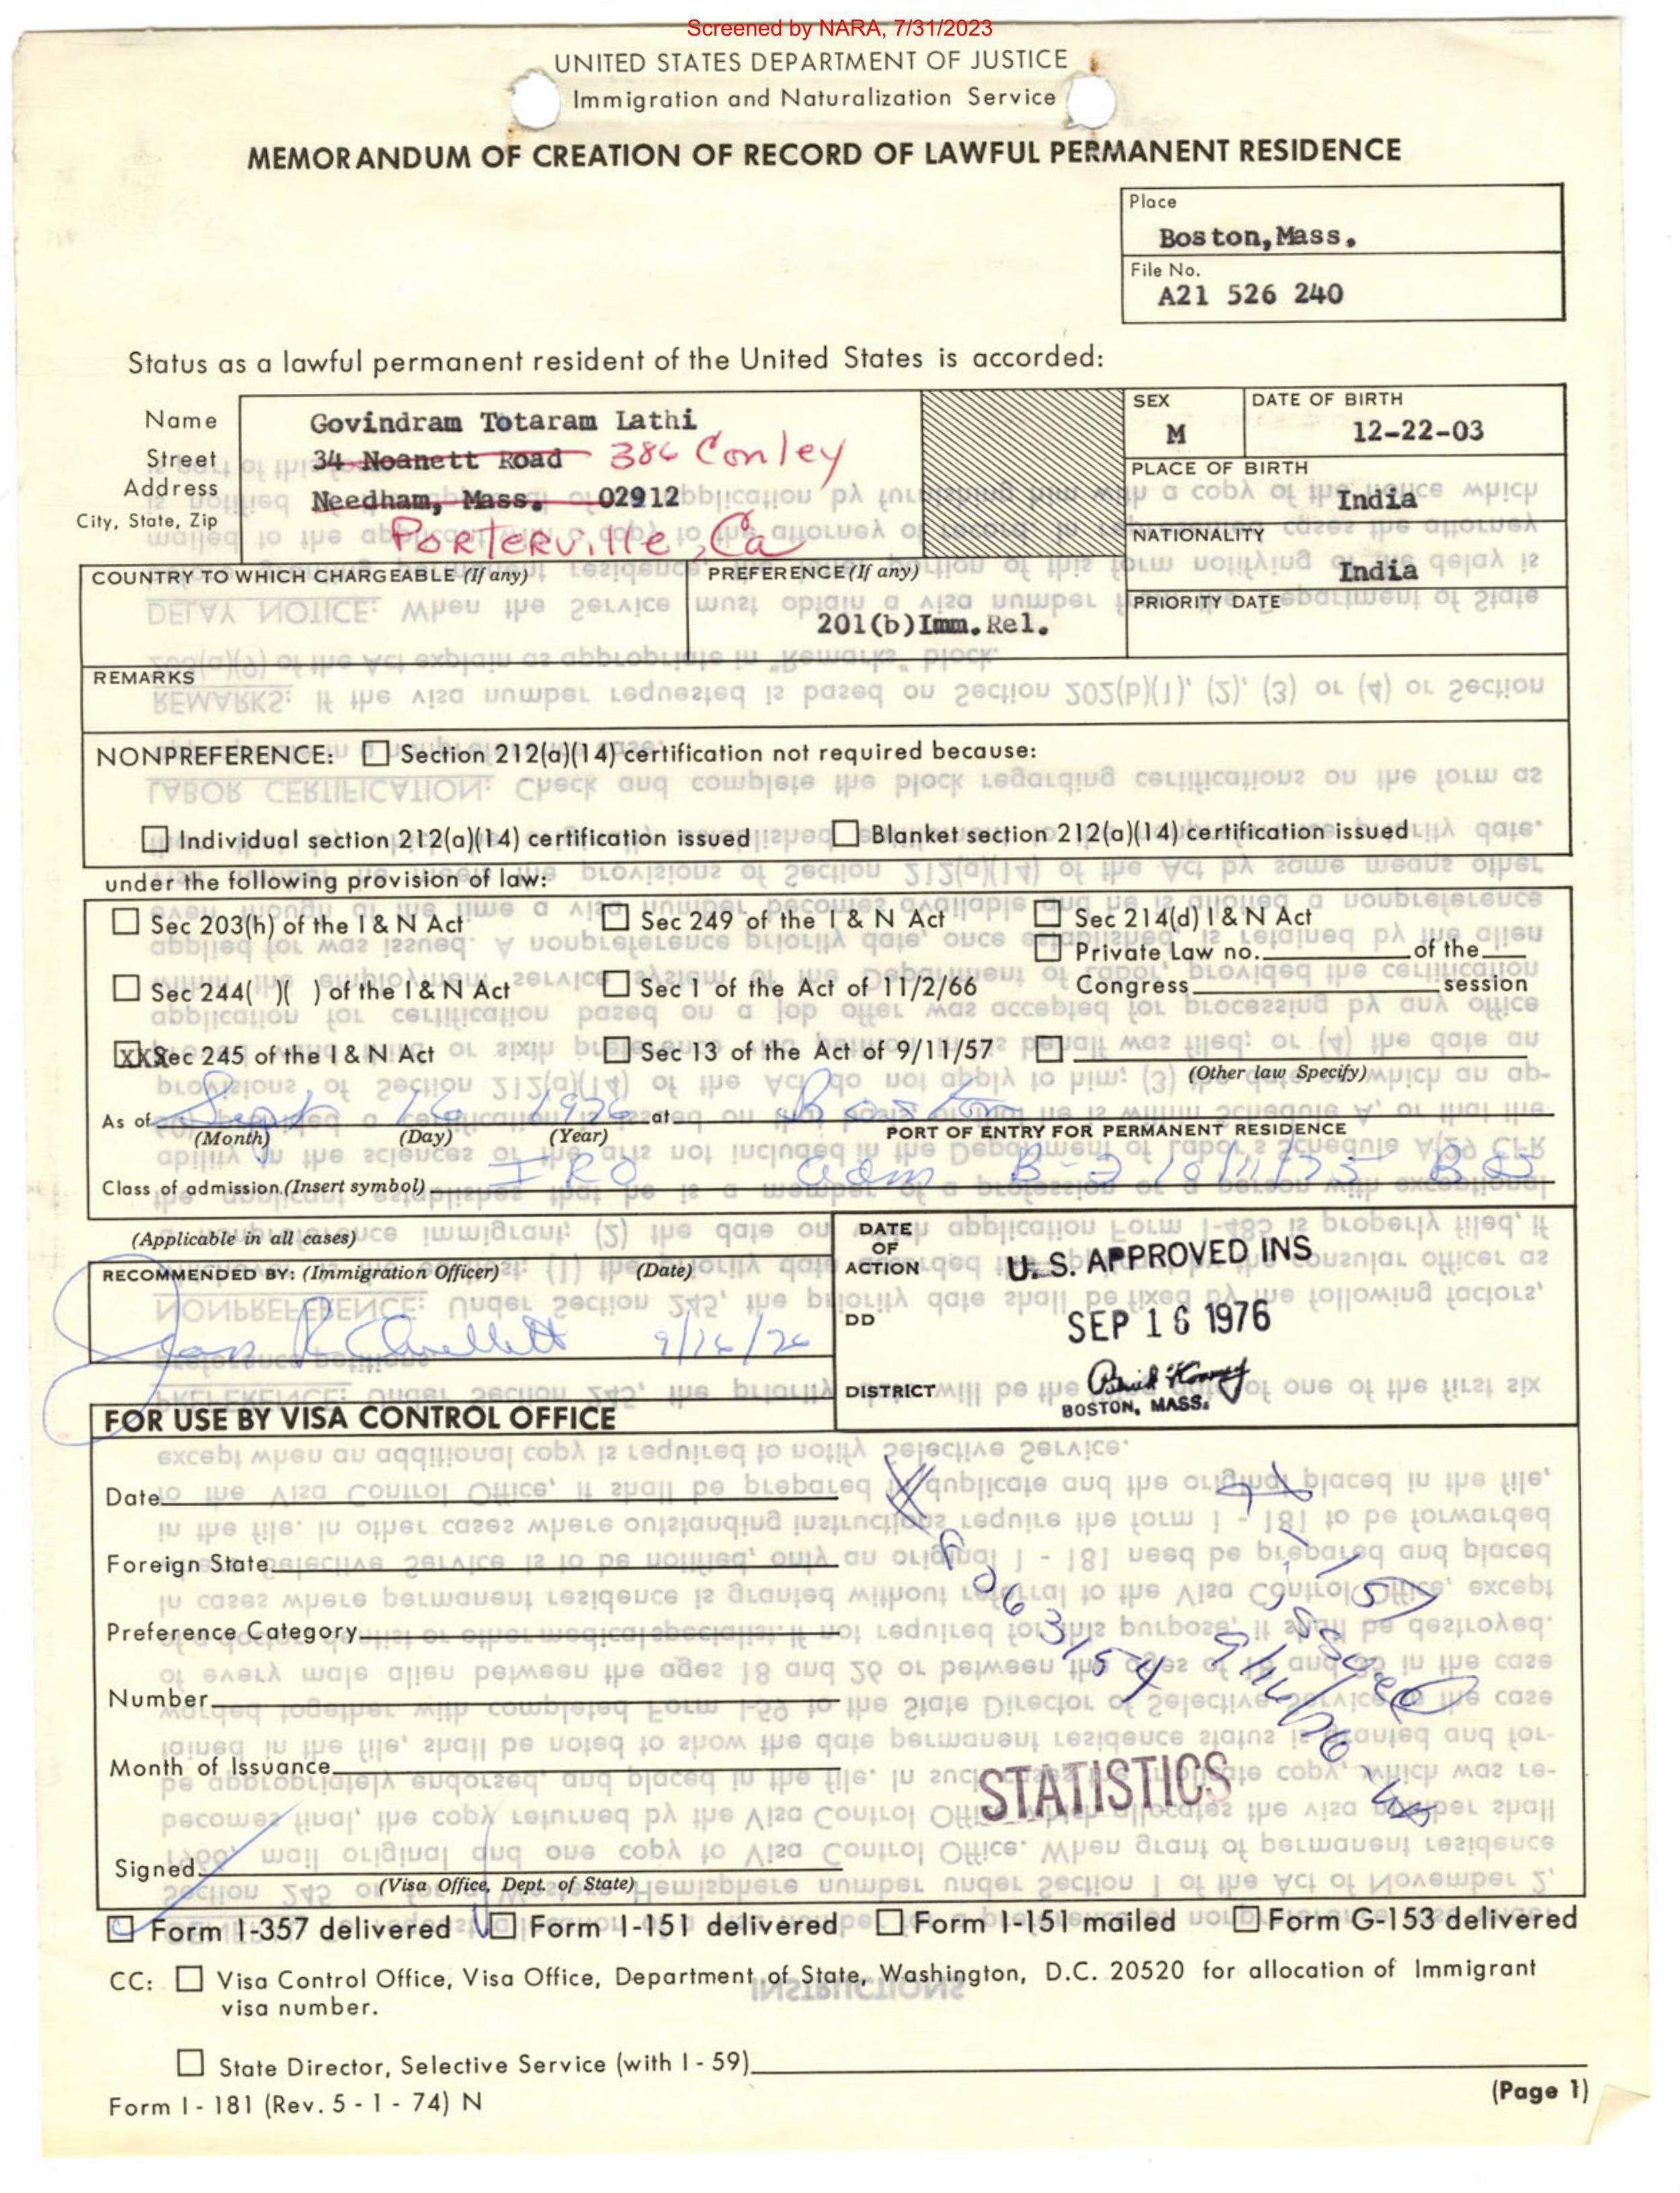 Screened by NARA, 7/31/2023
UNITED STATES DEPARTMENT OF JUSTICE
Immigration and Naturalization Service
MEMORANDUM OF CREATION OF RECORD OF LAWFUL PERMANENT RESIDENCE
Place
Boston, Mass.
File No.
A21 526 240
Status as a lawful permanent resident of the United States is accorded:
Name Govindram Totaram Lathi
Street 34 Noanett Road 386 Conley
Address Needham, Mass. 02912
City, State, Zip Porterville, Ca
SEX
M
DATE OF BIRTH
12-22-03
PLACE OF BIRTH
India
NATIONALITY
India
COUNTRY TO WHICH CHARGEABLE (If any)
PREFERENCE (If any)
201(b)Imm.Rel.
PRIORITY DATE
REMARKS
NONPREFERENCE: Section 212(a)(14) certification not required because:
Individual section 212(a)(14) certification issued Blanket section 212(a)(14) certification issued
under the following provision of law:
Sec 203(h) of the I & N Act Sec 249 of the I & N Act Sec 214(d) I & N Act
Private Law no. of the
Sec 244( )( ) of the I & N Act Sec 1 of the Act of 11/2/66 Congress session
XXSec 245 of the I & N Act Sec 13 of the Act of 9/11/57
(Other law Specify)
As of Sept 16 1976 at Boston
(Month) (Day) (Year) PORT OF ENTRY FOR PERMANENT RESIDENCE
Class of admission (Insert symbol) IRO adm B-2
(Applicable in all cases)
RECOMMENDED BY: (Immigration Officer) (Date)
9/16/76
DATE
OF
ACTION
DD
DISTRICT
U. S. APPROVED INS
SEP 16 1976
BOSTON, MASS.
FOR USE BY VISA CONTROL OFFICE
Date
Foreign State
Preference Category
Number
Month of Issuance
Signed
(Visa Office, Dept. of State)
I-151
issued
STATISTICS
Form I-357 delivered Form I-151 delivered Form I-151 mailed Form G-153 delivered
CC: Visa Control Office, Visa Office, Department of State, Washington, D.C. 20520 for allocation of Immigrant
visa number.
State Director, Selective Service (with I - 59)
Form I - 181 (Rev. 5 - 1 - 74) N
(Page 1)